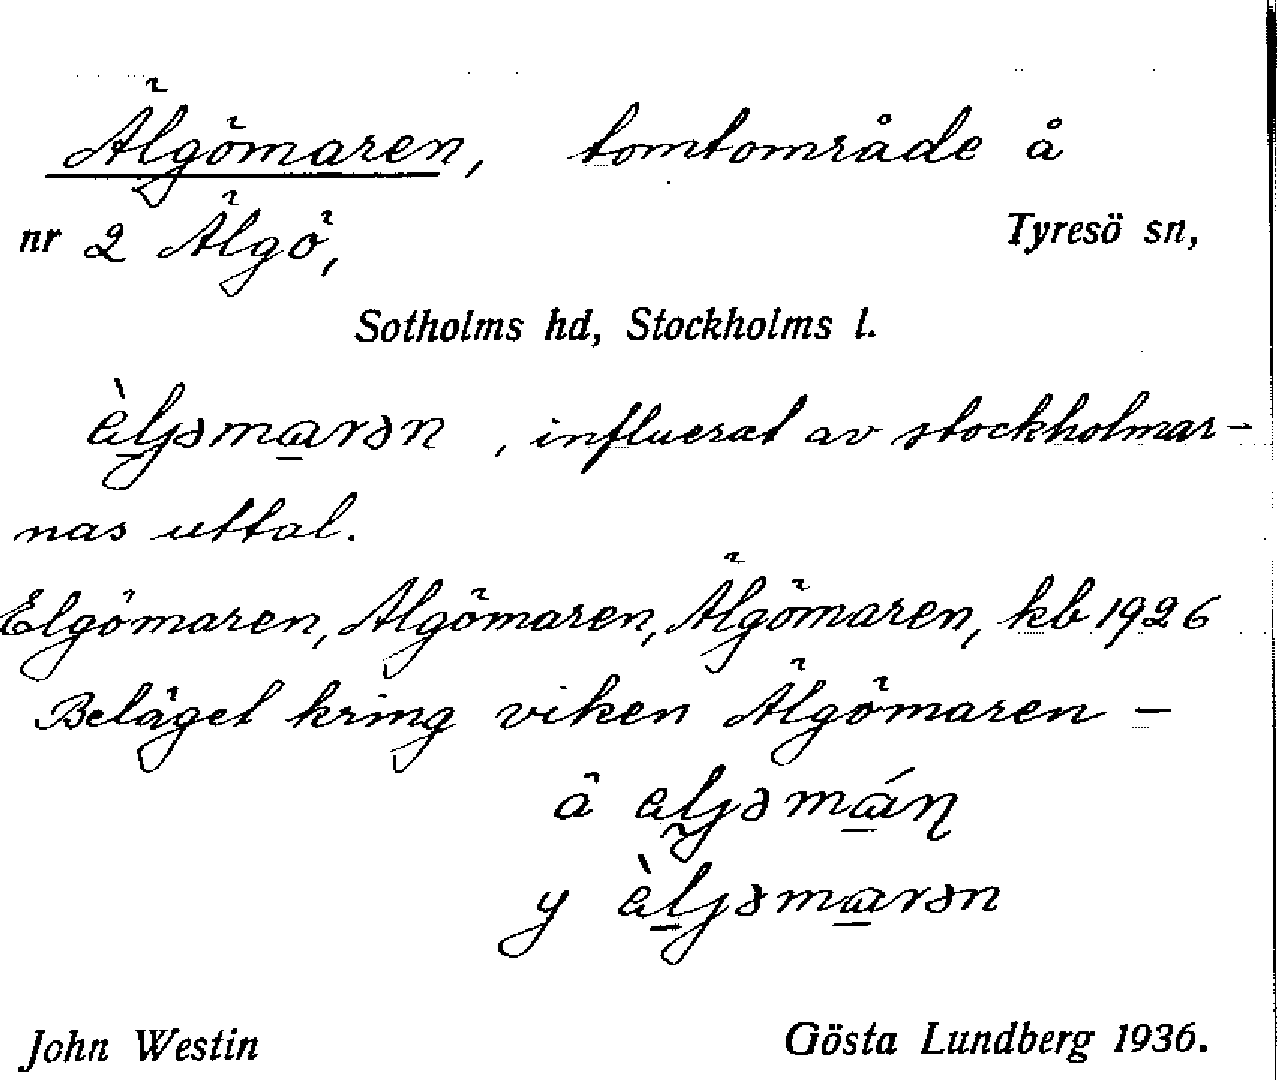 Älgömaren, tomtområde å
nr 2 Älgö, Tyresö sn,
Sotholms hd, Stockholms l.
è̀ljəmarən , influerat av stockholmar-
nas uttal.
Elgömaren, Algömaren, Älgömaren, kb 1926
Beläget kring viken Älgömaren –
ä eljəmáɳ
y èljəmarən
John Westin Gösta Lundberg 1936.